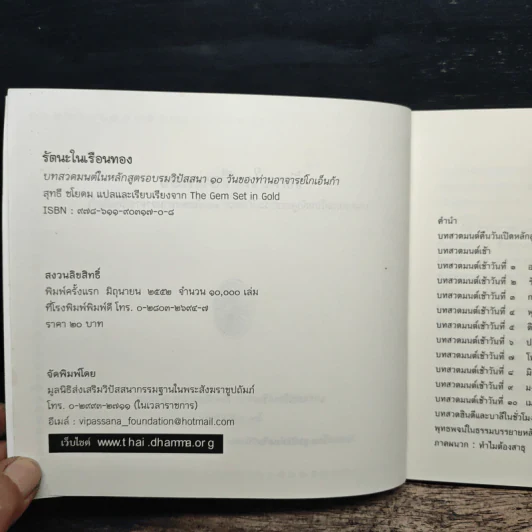 รัตนะในเรือนทอง
บทสวดมนต์ในหลักสูตรอบรมวิปัสสนา ๑๐ วันของท่านอาจารย์โกเอ็นก้า
สุทธี ชโยดม แปลและเรียบเรียงจาก The Gem Set in Gold
ISBN : ๙๗๘-๖๑๑-๙๐๓๑๗-๐-๘
สงวนลิขสิทธิ์
พิมพ์ครั้งแรก มิถุนายน ๒๕๕๒ จำนวน ๑๐,๐๐๐ เล่ม
ที่โรงพิมพ์พิมพ์ดี โทร. ๐-๒๘๐๓-๒๖๙๔-๗
ราคา ๒๐ บาท
จัดพิมพ์โดย
มูลนิธิส่งเสริมวิปัสสนากรรมฐานในพระสังฆราชูปถัมภ์
โทร. ๐-๒๙๙๓-๒๗๑๑ (ในเวลาราชการ)
อีเมล์ : vipassana_foundation@hotmail.com
เว็บไซต์ www.thai.dhamma.org
คำนำ
บทสวดมนต์คืนวันเปิดหลักสู
บทสวดมนต์เช้า
บทสวดมนต์เช้าวันที่ ๑
บทสวดมนต์เช้าวันที่ ๒
บทสวดมนต์เช้าวันที่ ๓
บทสวดมนต์เช้าวันที่ ๔
บทสวดมนต์เช้าวันที่ ๕
บทสวดมนต์เช้าวันที่ ๖
บทสวดมนต์เช้าวันที่ ๗
บทสวดมนต์เช้าวันที่ ๘
บทสวดมนต์เช้าวันที่ ๙
บทสวดมนต์เช้าวันที่ ๑๐
บทสวดฮินดีและบาลีในชั่วโมง
พุทธพจน์ในธรรมบรรยายหลั
ภาคผนวก : ทำไมต้องสาธุ